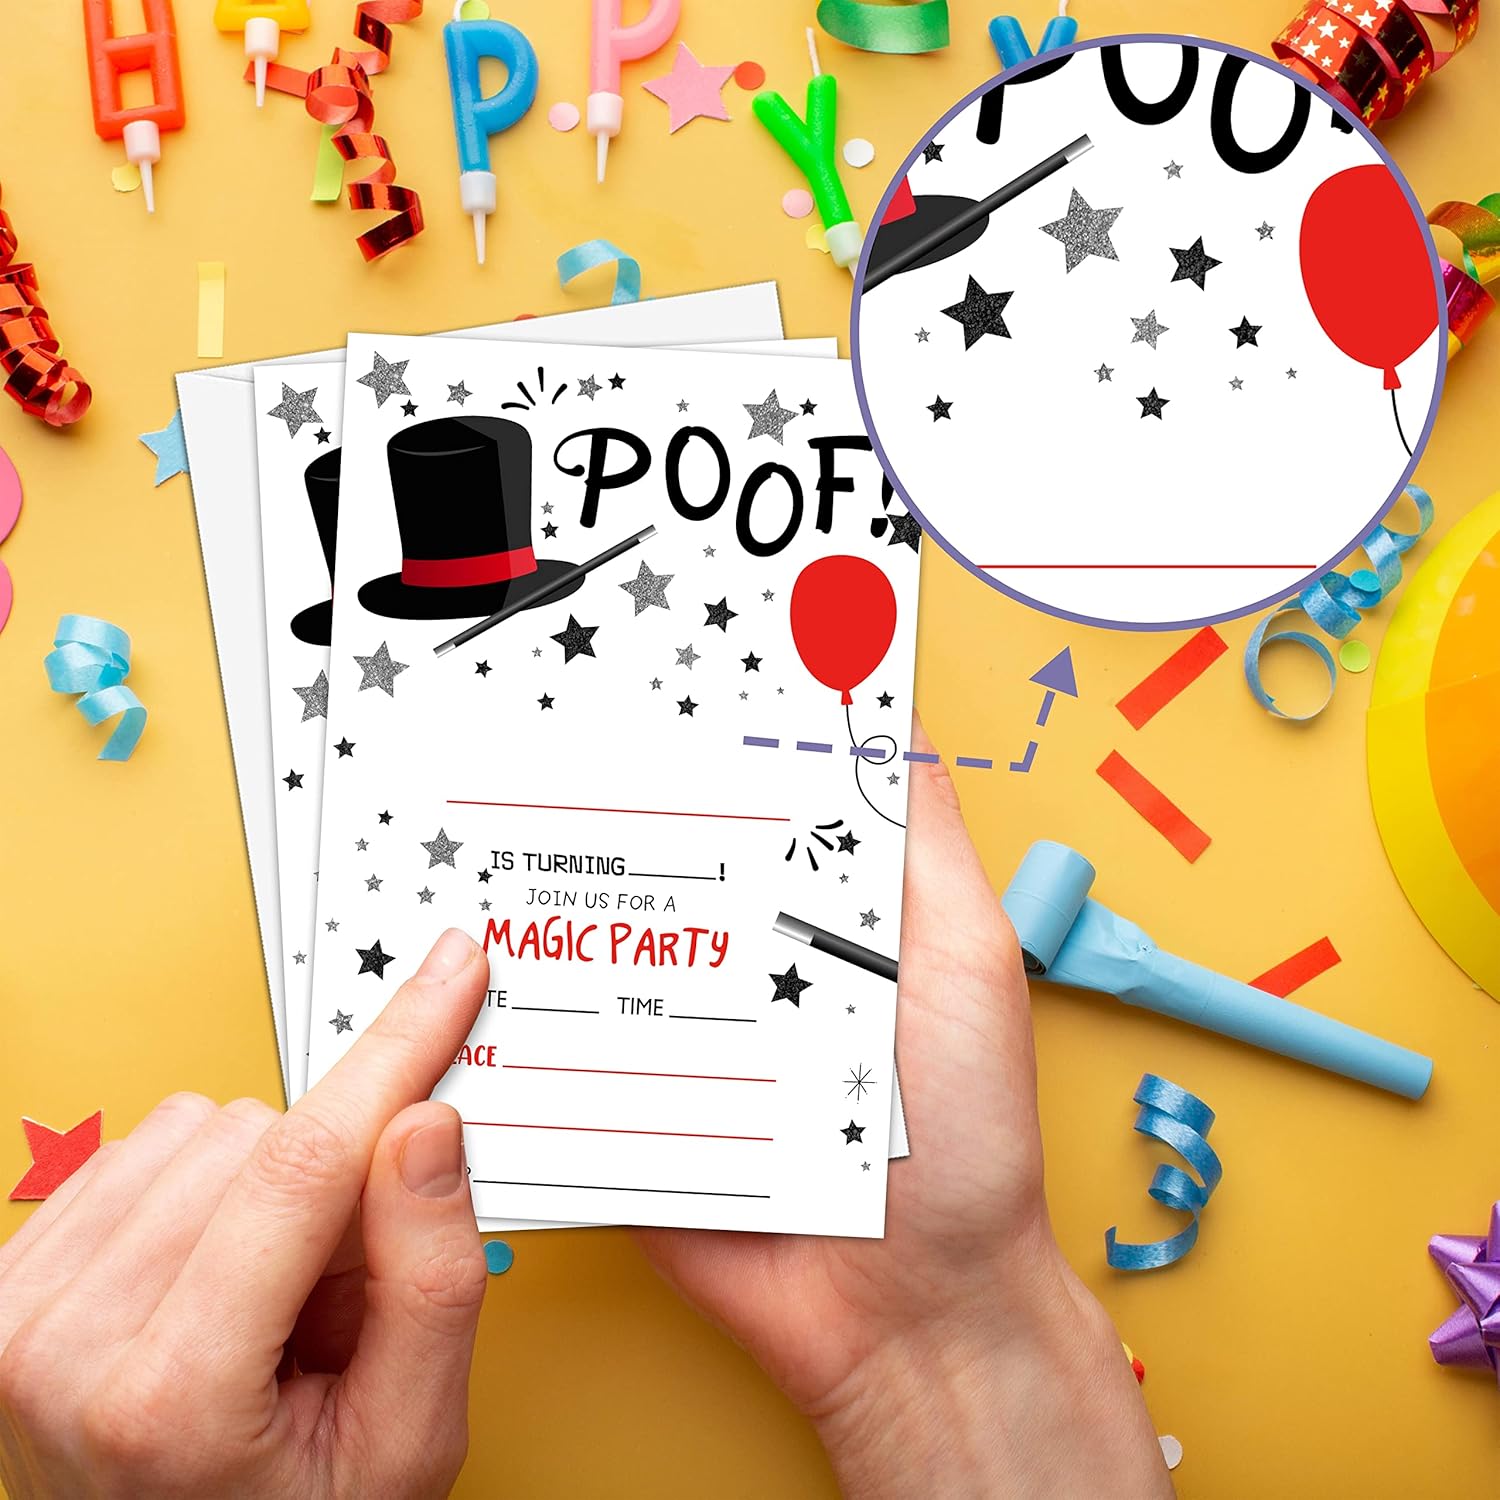 HAPPY
POOF!
IS TURNING______!
JOIN US FOR A
MAGIC PARTY
TE______ TIME______
ACE